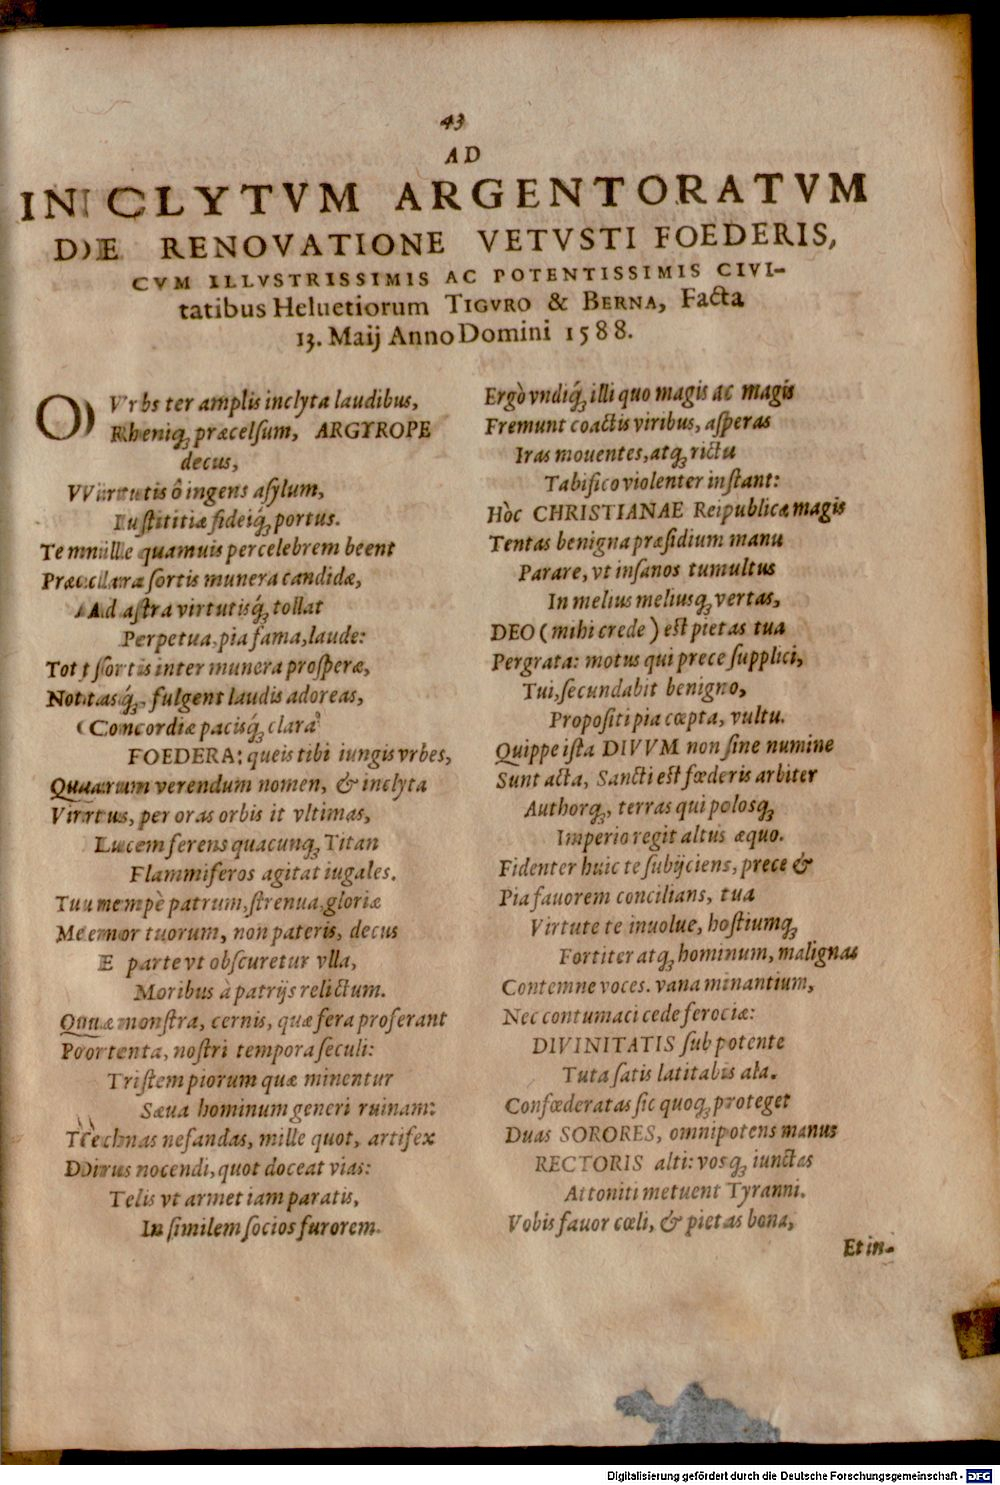 43
AD
INCLYTVM ARGENTORATVM
DE RENOVATIONE VETVSTI FOEDERIS,
CVM ILLVSTRISSIMIS AC POTENTISSIMIS CIVI-
tatibus Heluetiorum TIGVRO & BERNA, Facta
13. Maij Anno Domini 1588.
O Vrbs ter amplis inclyta laudibus,
Rheniq́; præcelsum, ARGYROPE
decus,
Virtutis ô ingens asylum,
Iustitiæ fideiq́; portus.
Te mille quamuis percelebrem beent
Præclara sortis munera candidæ,
Ad astra virtutisq́; tollat
Perpetua, pia fama, laude:
Tot sortis inter munera prosperæ,
Notasq́;, fulgent laudis adoreas,
Concordiæ pacisq́; clara
FOEDERA: queis tibi iungis vrbes,
Quarum verendum nomen, & inclyta
Virtus, per oras orbis it vltimas,
Lucem ferens quacunq; Titan
Flammiferos agitat iugales.
Tu nempè patrum, strenua, gloriæ
Memor tuorum, non pateris, decus
E parte vt obscuretur vlla,
Moribus à patrijs relictum.
Quæ monstra, cernis, quæ fera proferant
Portenta, nostri tempora seculi:
Tristem piorum quæ minentur
Sæua hominum generi ruinam:
Technas nefandas, mille quot, artifex
Dirus nocendi, quot doceat vias:
Telis vt armet iam paratis,
In similem socios furorem.
Ergò vndiq́; illi quo magis ac magis
Fremunt coactis viribus, asperas
Iras mouentes, atq; rictu
Tabifico violenter instant:
Hòc CHRISTIANAE Reipublicæ magis
Tentas benigna præsidium manu
Parare, vt insanos tumultus
In melius meliusq; vertas,
DEO (mihi crede) est pietas tua
Pergrata: motus qui prece supplici,
Tui, secundabit benigno,
Propositi pia cœpta, vultu.
Quippe ista DIVVM non sine numine
Sunt acta, Sancti est fœderis arbiter
Authorq;, terras qui polosq;
Imperio regit altus æquo.
Fidenter huic te subijciens, prece &
Pia fauorem concilians, tua
Virtute te inuolue, hostiumq;
Fortiter atq; hominum, malignas
Contemne voces. vana minantium,
Nec contumaci cede ferociæ:
DIVINITATIS sub potente
Tuta satis latitabis ala.
Confœderatas sic quoq; proteget
Duas SORORES, omnipotens manus
RECTORIS alti: vosq; iunctas
Attoniti metuent Tyranni.
Vobis fauor cœli, & pietas bona,
Et in-
Digitalisierung gefördert durch die Deutsche Forschungsgemeinschaft - DFG